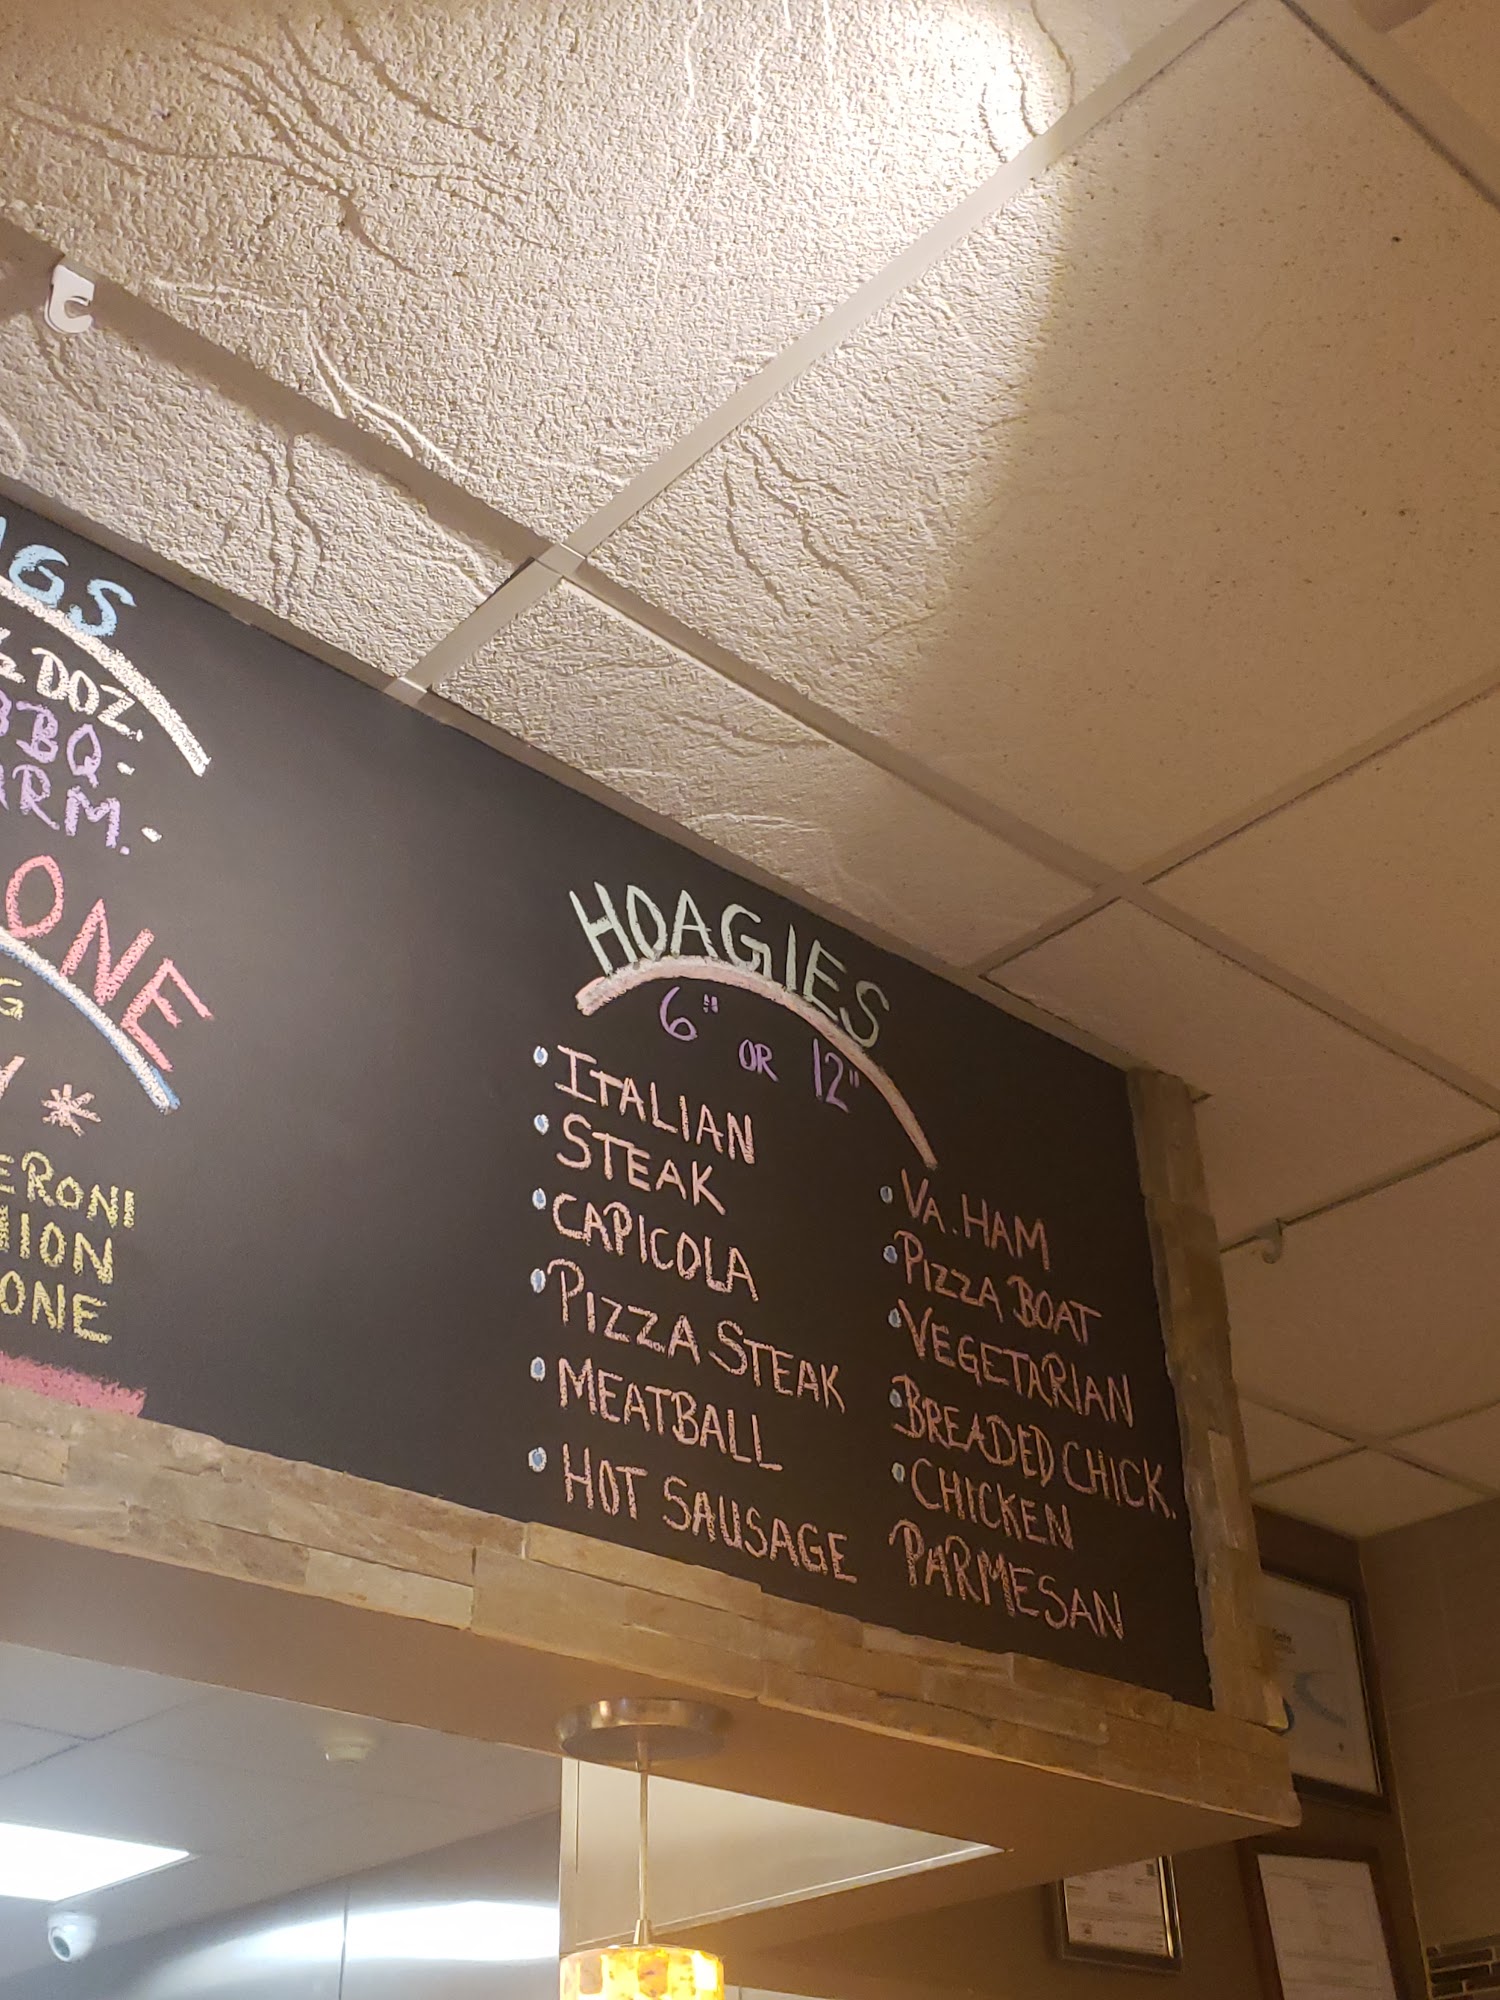 DOZ.
BBQ-
HOAGIES
6" OR 12"
• ITALIAN
• STEAK
• CAPICOLA
• PIZZA STEAK
• MEATBALL
• HOT SAUSAGE
• VA. HAM
• PIZZA BOAT
• VEGETARIAN
• BREADED CHICK.
• CHICKEN
PARMESAN